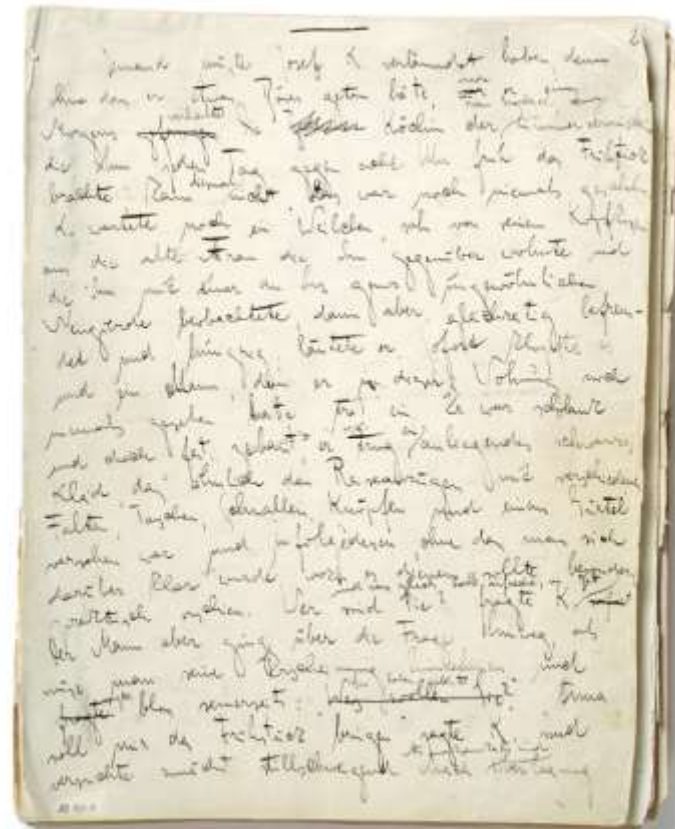 Jemand mußte Josef K. verläumdet haben, denn
ohne daß er etwas Böses getan hätte, war er eines
Morgens verhaftet Köchin der Zimmervermieterin
die ihm jeden Tag gegen acht Uhr früh das Frühstück
brachte kam diesmal nicht Das war noch niemals geschehn
K. wartete noch ein Weilchen, sah von seinem Kopfkissen
aus die alte Frau die ihm gegenüber wohnte und
die ihn mit einer an ihr ganz ungewöhnlichen
Neugierde beobachtete, dann aber gleichzeitig befrem-
det und hungrig läutete er Sofort klopfte es
und ein Mann, den er in dieser Wohnung noch
niemals gesehen hatte trat ein Er war schlank
und doch fest gebaut, er trug ein anliegendes schwarzes
Kleid das ähnlich den Reiseanzügen mit verschiedenen
Falten, Taschen, Schnallen Knöpfen und einem Gürtel
versehen war und infolgedessen ohne daß man sich
darüber klar wurde, wozu es dienen sollte besonders
praktisch erschien. Wer sind Sie? fragte K
Der Mann aber ging über die Frage hinweg, als
müsse man seine Erscheinung hinnehmen und
sagte blos seinerseits: Anna
soll mir das Frühstück bringen sagte K. und
versuchte zunächst stillschweigend durch Überlegung